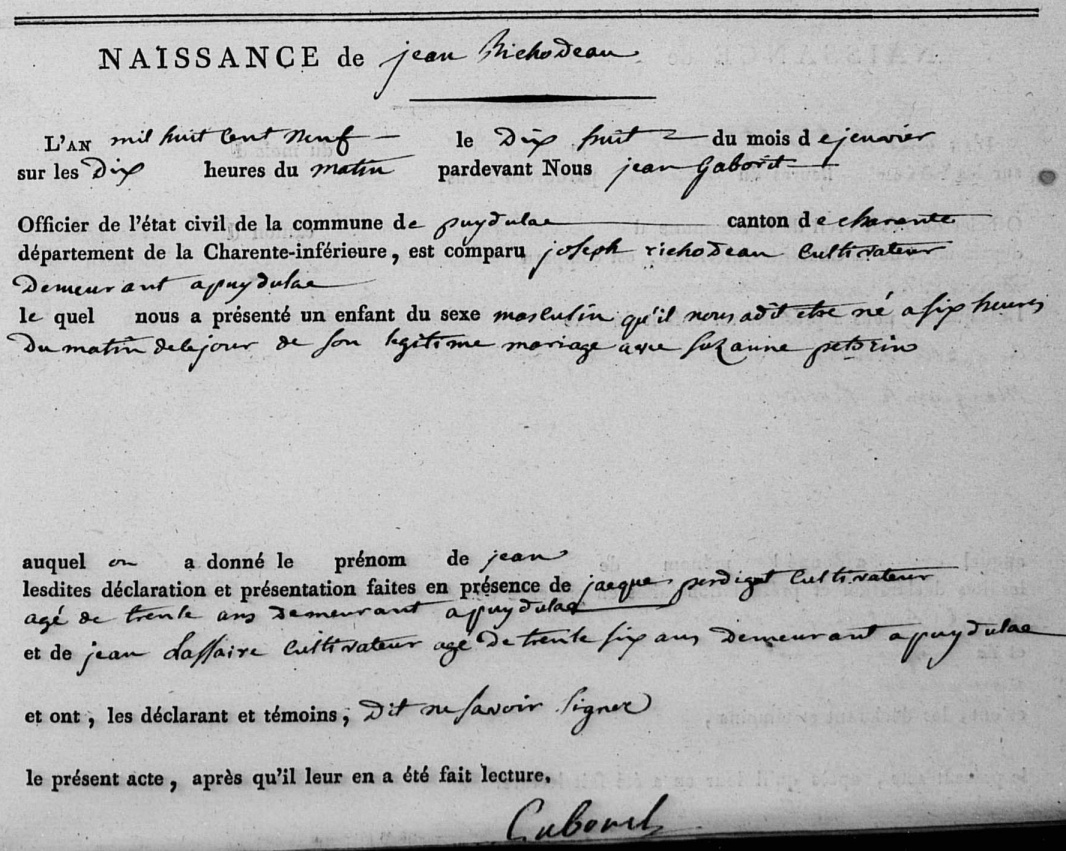 NAISSANCE de jean Richodeau
L'AN mil huit Cent Neuf le Dix huit du mois de jenvier
sur les Dix heures du matin pardevant Nous jean Gaborit
Officier de l'état civil de la commune de puydulac canton de charente
département de la Charente-inférieure, est comparu joseph richodeau Cultivateur
Demeurant a puydulac
le quel nous a présenté un enfant du sexe masculin qu'il nous a dit etre né a six heures
Du matin de le jour de Son legitime mariage avec Suzanne
auquel on a donné le prénom de jean
lesdites déclaration et présentation faites en présence de jacque perdiget Cultivateur
agé de trente ans Demeurant a puydulac
et de jean Laffaire Cultivateur agé De trente six ans Demeurant a puydulac
et ont, les déclarant et témoins, Dit ne Savoir Signer
le présent acte, après qu'il leur en a été fait lecture.